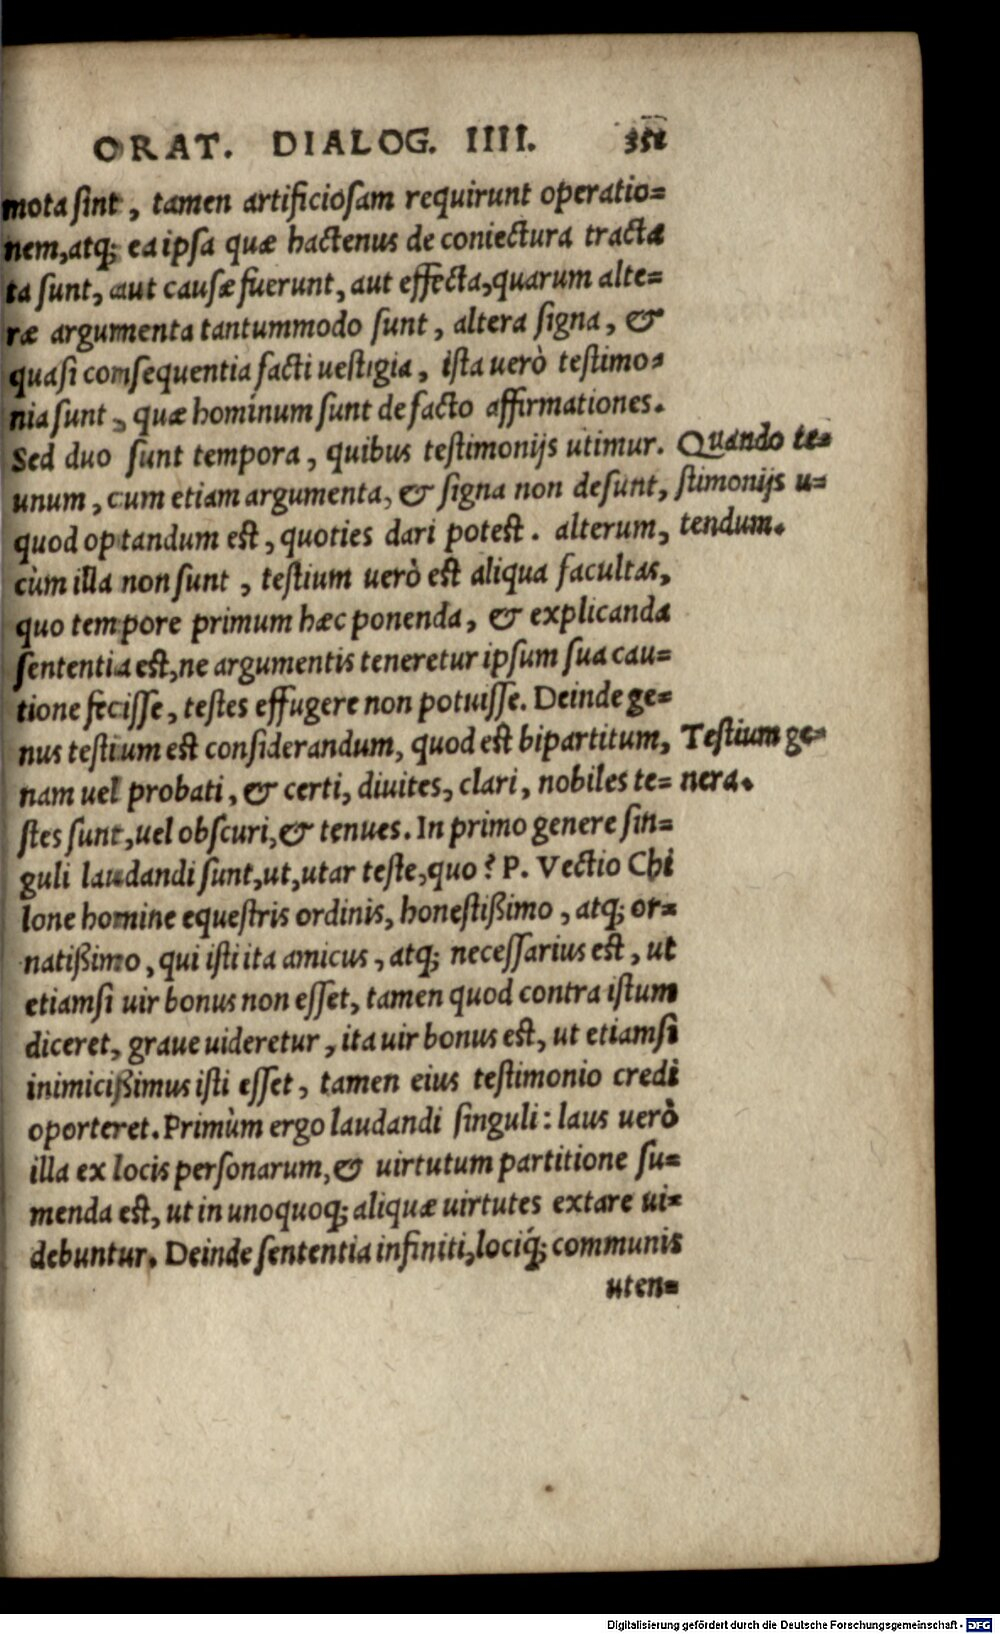 ORAT. DIALOG. IIII.
mota sint, tamen artificiosam requirunt operatio=
nem, atq; ea ipsa quæ hactenus de coniectura tracta
ta sunt, aut causæ fuerunt, aut effecta, quarum alte=
ræ argumenta tantummodo sunt, altera signa, &
quasi comsequentia facti uestigia, ista uerò testimo=
nia sunt, quæ hominum sunt de facto affirmationes.
Sed duo sunt tempora, quibus testimonijs utimur.
Quando te=
unum, cum etiam argumenta, & signa non desunt,
stimonijs u=
quod optandum est, quoties dari potest. alterum,
tendum.
cùm illa non sunt, testium uerò est aliqua facultas,
quo tempore primum hæc ponenda, & explicanda
sententia est, ne argumentis teneretur ipsum sua cau=
tione fecisse, testes effugere non potuisse. Deinde ge=
nus testium est considerandum, quod est bipartitum,
Testium ge=
nam uel probati, & certi, diuites, clari, nobiles te=
nera.
stes sunt, uel obscuri, & tenues. In primo genere sin=
guli laudandi sunt, ut, utar teste, quo? P. Vectio Chi
lone homine equestris ordinis, honestißimo, atq; or=
natißimo, qui isti ita amicus, atq; necessarius est, ut
etiamsi uir bonus non esset, tamen quod contra istum
diceret, graue uideretur, ita uir bonus est, ut etiamsi
inimicißimus isti esset, tamen eius testimonio credi
oporteret. Primùm ergo laudandi singuli: laus uerò
illa ex locis personarum, & uirtutum partitione su=
menda est, ut in unoquoq; aliquæ uirtutes extare ui=
debuntur. Deinde sententia infiniti, lociq́; communis
uten=
Digitalisierung gefördert durch die Deutsche Forschungsgemeinschaft - DFG